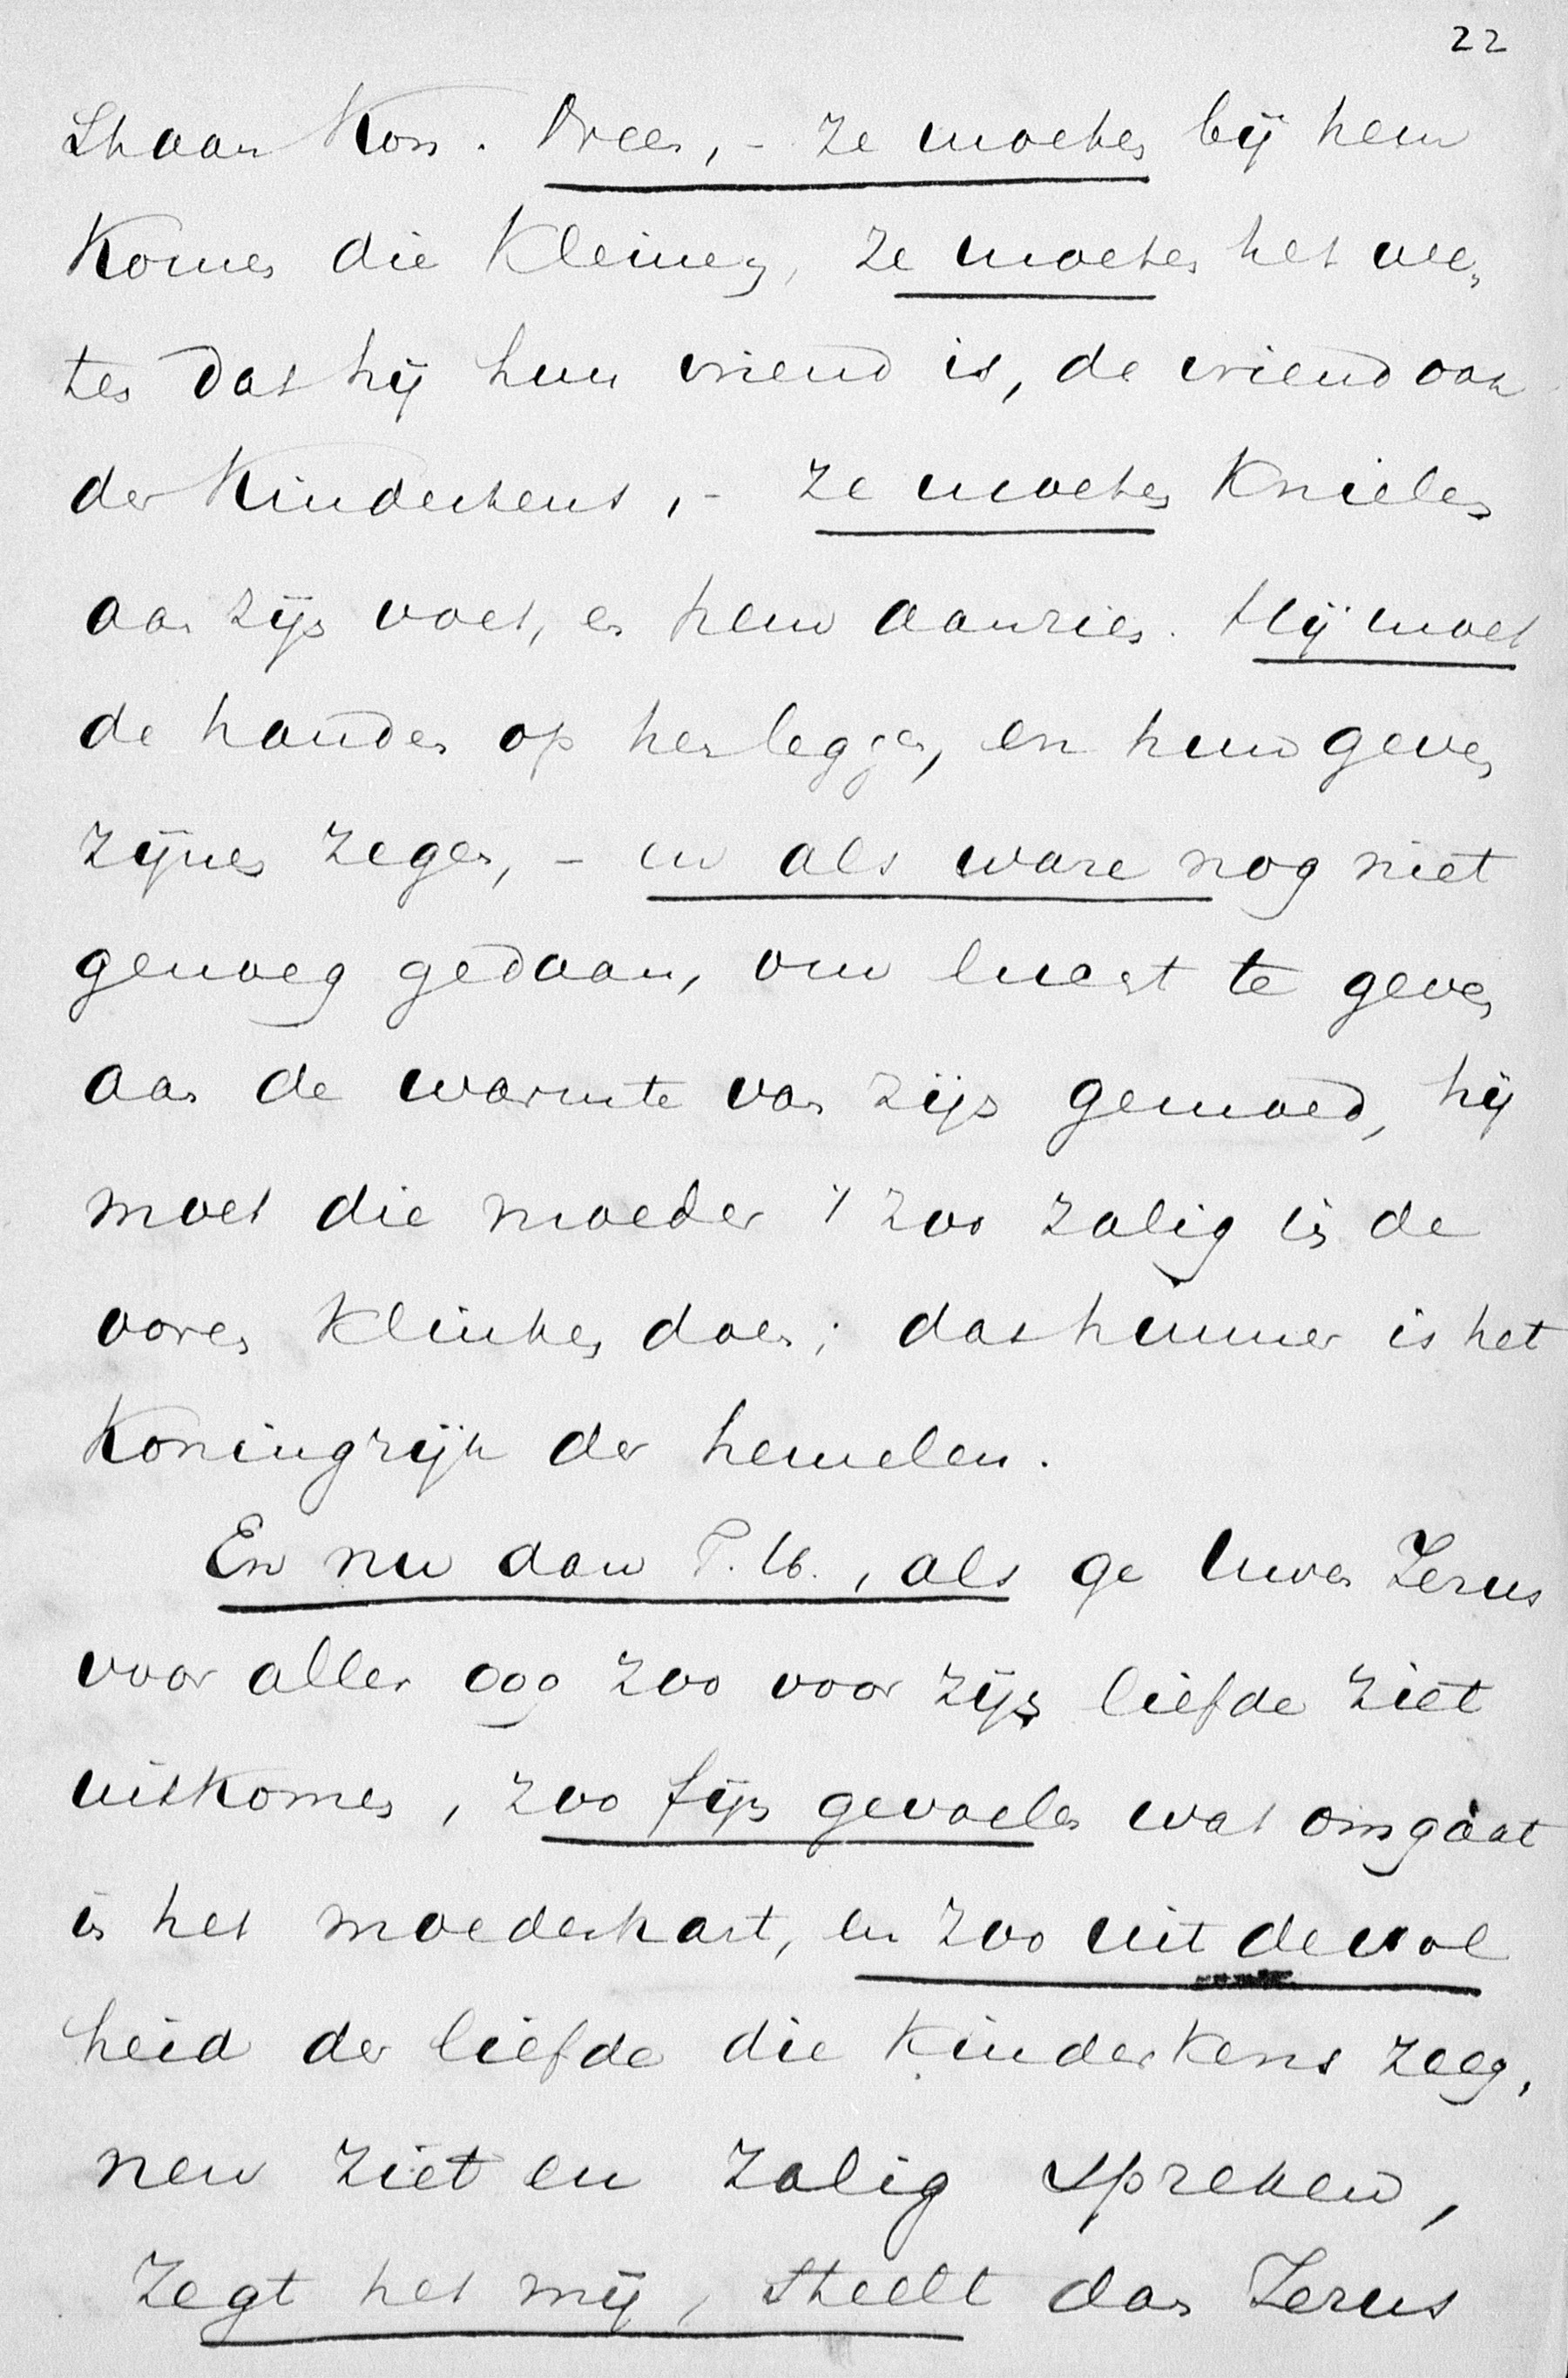 22
staan kon. Neen, - ze moeten bij hem
komen die kleinen, ze moeten het wee,
ten dat hij hun vriend is, de vriend ook
der kinderkens, - ze moeten knielen
aan zijn voet, en hem aanzien. Hij moet
de handen op hen leggen, en hun geven
zijnen zegen, - en als ware nog niet
genoeg gedaan, om lucht te geven
aan de warmte van zijn gemoed, hij
moet die moeder 't zoo zalig in de
ooren klinken doen; dat hunner is het
Koningrijk der hemelen.
En nu dan T. G., als ge Uwen Jezus
voor aller oog zoo voor zijn liefde ziet
uitkomen, zoo fijn gevoelen wat omgaat
in het moederhart, en zoo uit de vol
heid der liefde die kinderkens zeeg,
nen ziet en zalig spreken,
zegt het mij, steelt dan Jezus